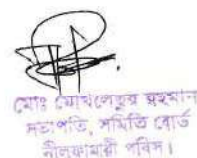 মোঃ মোখলেছুর রহমান
সভাপতি, সমিতি বোর্ড
নীলফামারী পবিস।